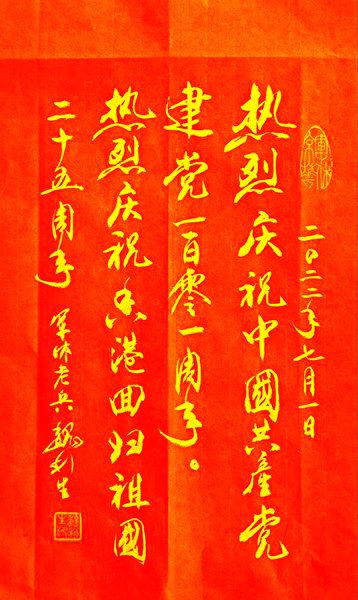 二〇二二年七月一日
热烈庆祝中國共產党
建党一百零一周年。
热烈庆祝香港回归祖國
二十五周年
军休老兵魏利生